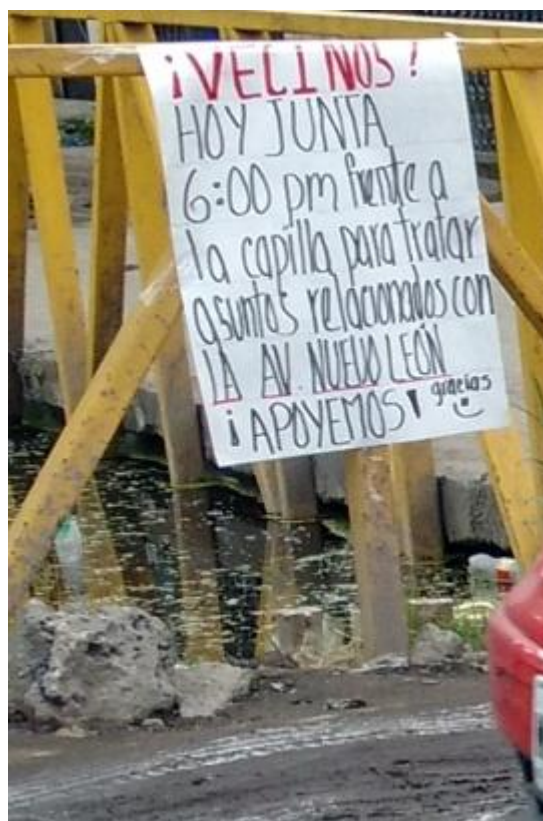 ¡VECINOS!
HOY JUNTA
6:00 pm frente a
la capilla para tratar
asuntos relacionados con
LA AV. NUEVO LEÓN
¡APOYEMOS! gracias